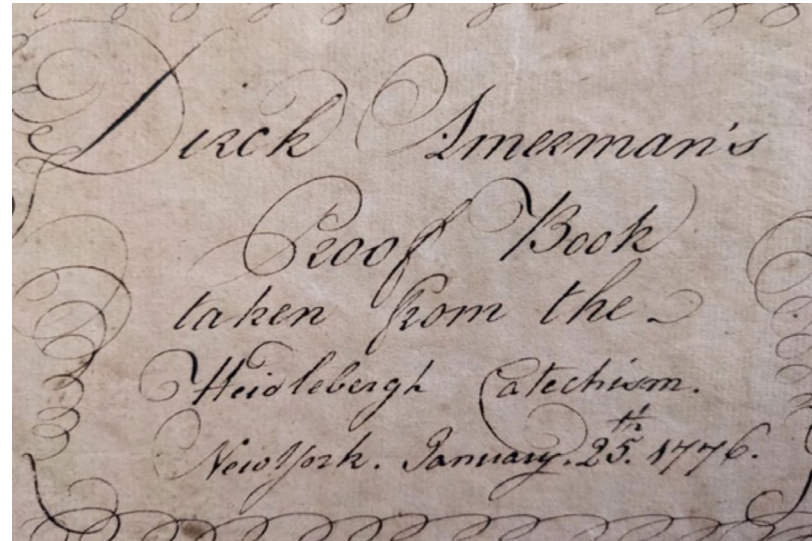 Dirck Amerman's
Proof Book
taken from the
Heidlebergh Catechism.
New York. January. 25th. 1776.